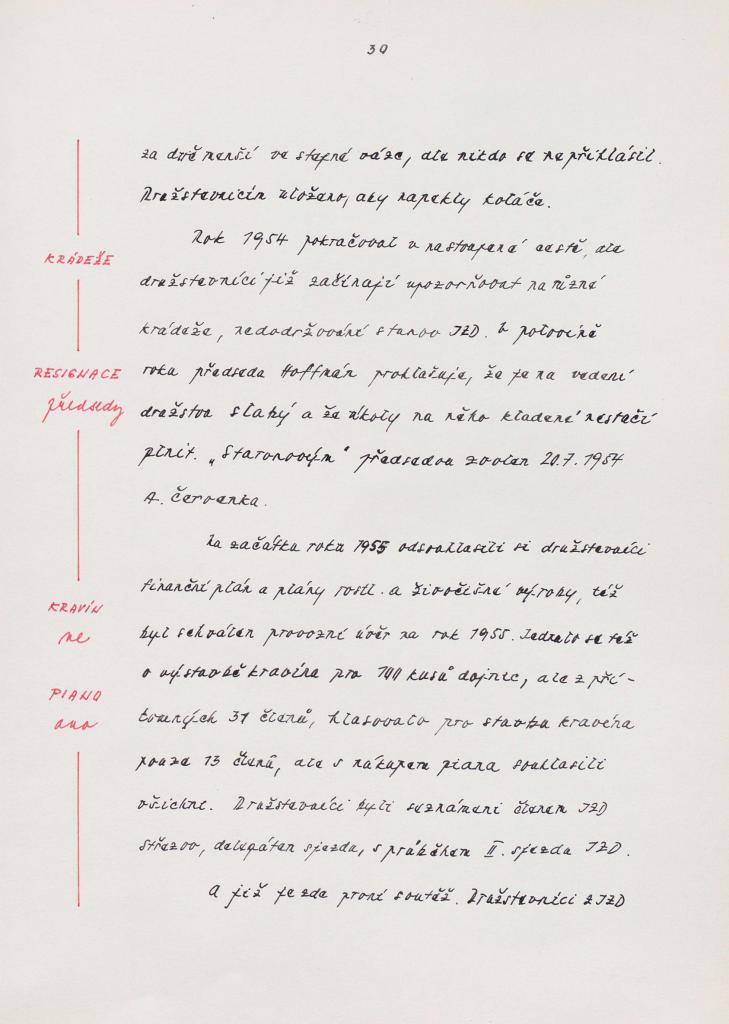 30
za dvě menší ve stejné váze, ale nikdo se nepřihlásil.
Družstevnicím uloženo, aby napekly koláče.
Rok 1954 pokračoval v nastoupené cestě, ale
KRÁDEŽE
družstevníci již začínají upozorňovat na různé
krádeže, nedodržování stanov JZD. V polovině
RESIGNACE
předsedy
roku předseda Hoffmán prohlašuje, že je na vedení
družstva slabý a že úkoly na něho kladené nestačí
plnit. „Staronovým" předsedou zvolen 20.7.1954
A. Červenka.
Na začátku roku 1955 odsouhlasili si družstevníci
finanční plán a plány rostl. a živočišné výroby, též
KRAVÍN
ne
byl schválen provozní úvěr na rok 1955. Jednalo se též
o výstavbě kravína pro 100 kusů dojnic, ale z pří-
PIANO
ano
tomných 31 členů, hlasovalo pro stavbu kravína
pouze 13 členů, ale s nákupem piana souhlasili
všichni. Družstevníci byli seznámeni členem JZD
Střezov, delegátem sjezdu, s průběhem II. sjezdu JZD.
A již je zde první soutěž. Družstevníci z JZD